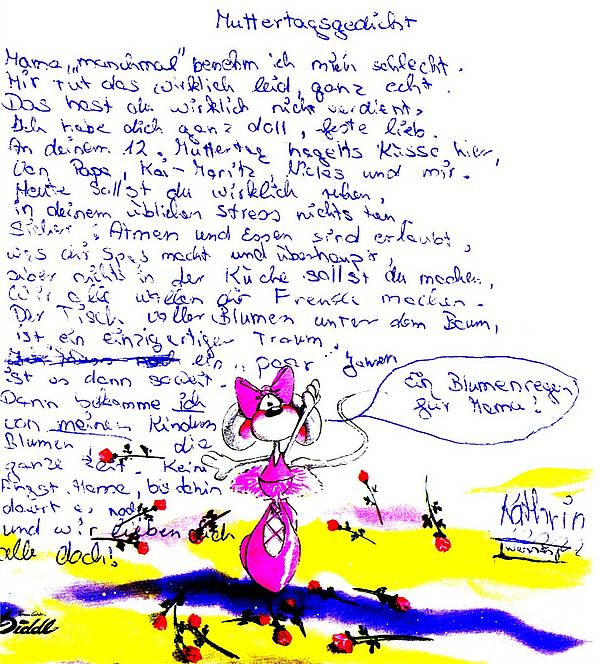 Muttertagsgedicht
Mama, "manchmal" benehm ich mich schlecht.
Mir tut das wirklich leid, ganz echt.
Das hast du wirklich nicht verdient,
Ich habe dich ganz doll, feste lieb.
An deinem 12. Muttertag hagelts Küsse hier,
Von Papa, Kai-Moritz, Niclas und mir.
Heute sollst du wirklich ruhen,
in deinem üblichen Stress nichts tun.
Sicher: Atmen und Essen sind erlaubt,
was dir Spas macht und überhaupt,
aber nichts in der Küche sollst du machen,
Wir alle wollen dir Freude machen.
Der Tisch voller Blumen unter dem Baum,
ist ein einzigartiger Traum.
ein "paar" Jahren
ist es dann soweit.
Dann bekomme ich
von meinen Kindern
Blumen die
ganze Zeit. Keine
Angst Mama, bis dahin
dauert es noch
und wir lieben dich
alle doch!
Ein Blumenregen
für Mama!
Kathrin
Diddl